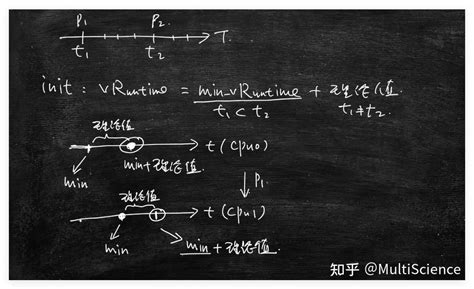 P₁ P₂
t₁ t₂ T
init : vRuntime = min_vRuntime + 理论值
t₁ < t₂ t₁ ≠ t₂.
理论值
t (cpu0)
min+理论值
min
↓ P₁
理论值
t (cpu1)
min min + 理论值.
知乎 @MultiScience